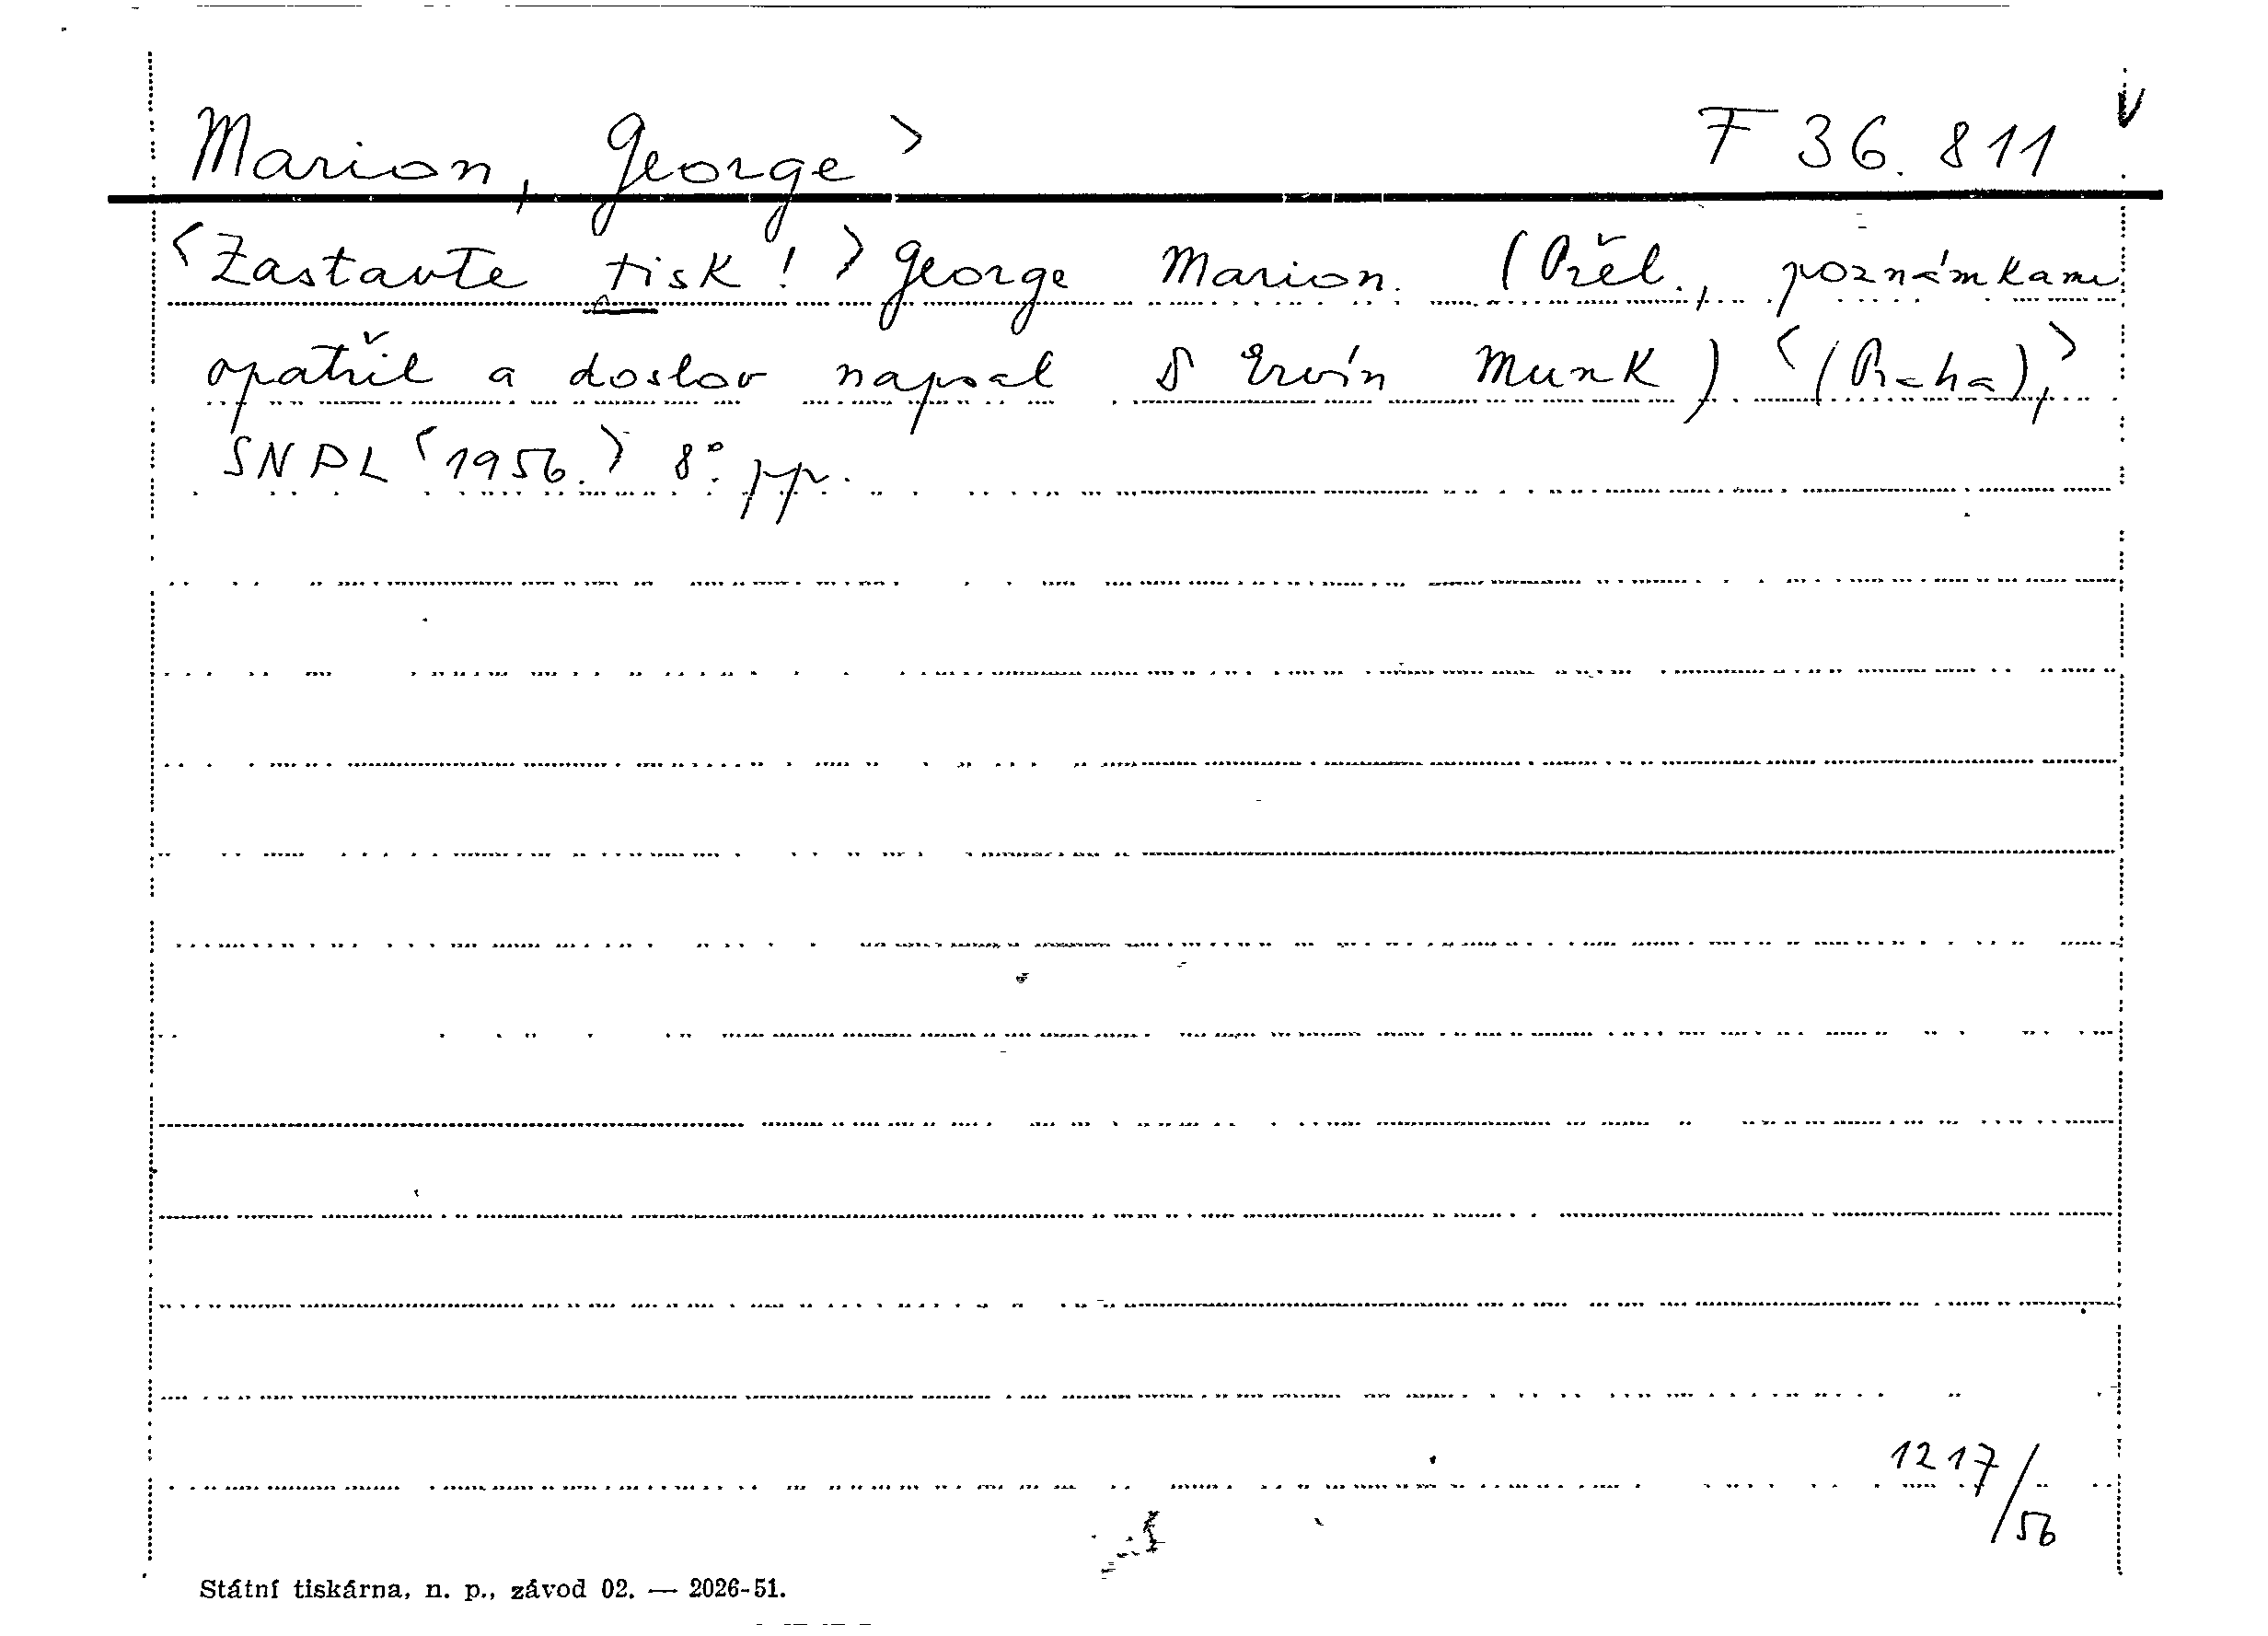 Marion, George> F 36.811
<Zastavte tisk!> George Marion. (Přel., poznámkami
opatřil a doslov napsal Ervín Munk) <(Praha),>
SNPL <1956.> 8°. pp.
1217/56
Státní tiskárna, n. p., závod 02. — 2026-51.